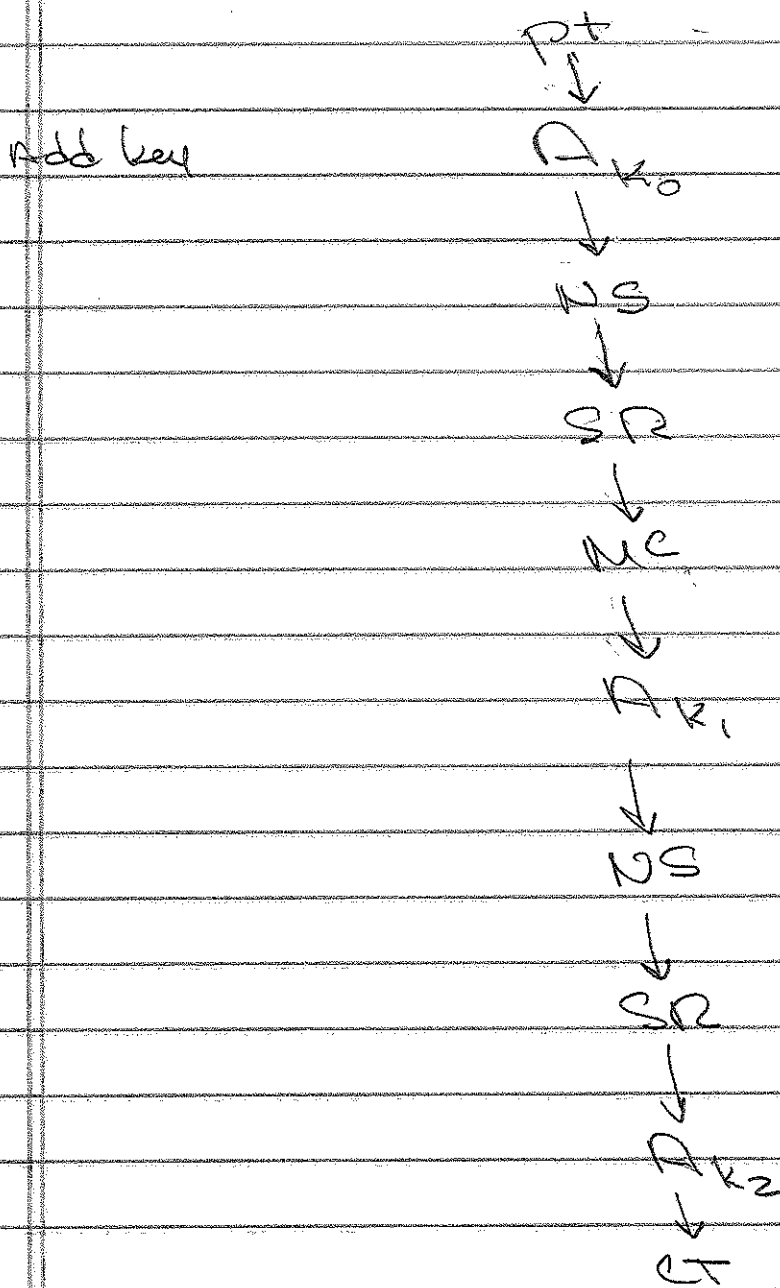 pt
↓
Add key A K0
↓
NS
↓
SR
↓
MC
↓
A K1
↓
NS
↓
SR
↓
A K2
↓
CT